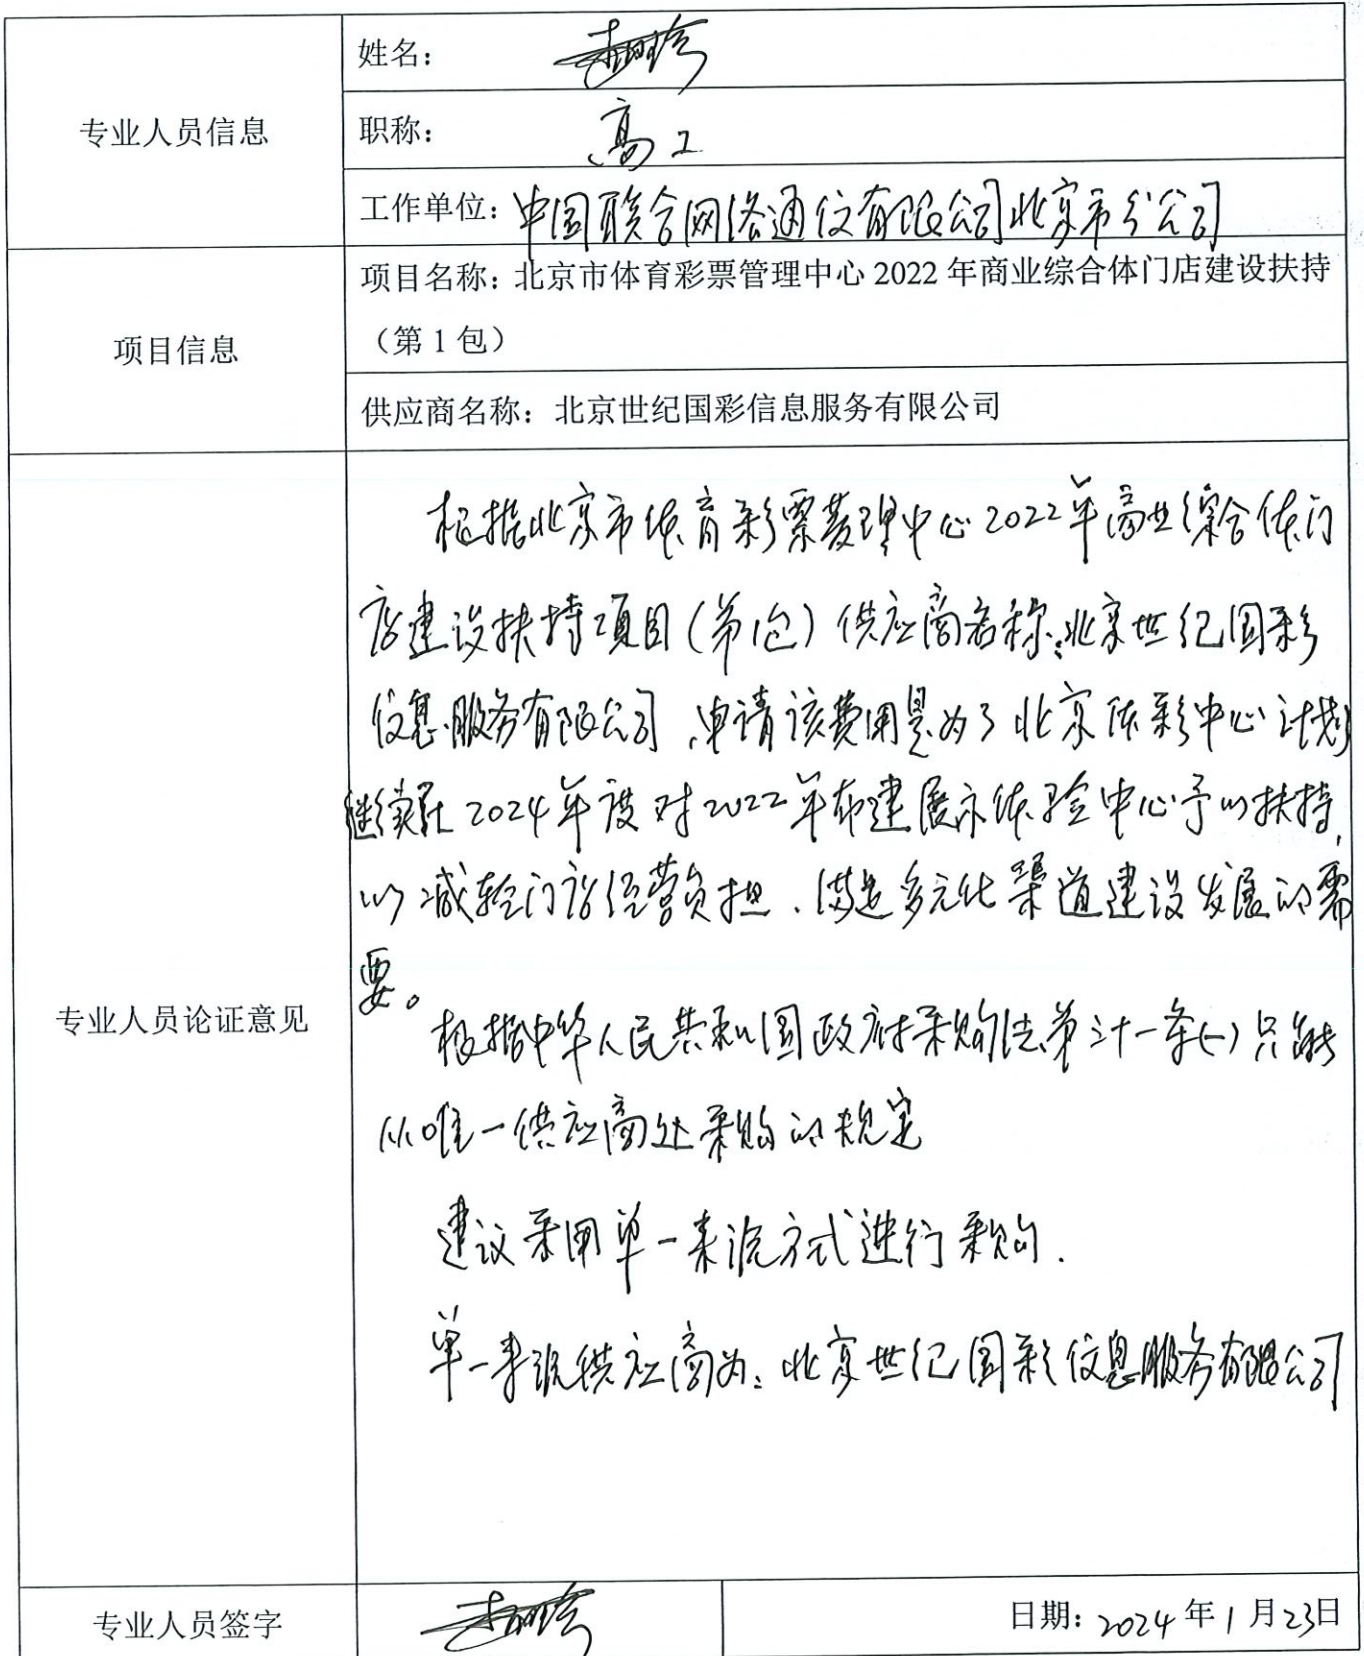 专业人员信息
姓名：
职称：高工
工作单位：中国联合网络通信有限公司北京市分公司
项目信息
项目名称：北京市体育彩票管理中心 2022 年商业综合体门店建设扶持
（第 1 包）
供应商名称：北京世纪国彩信息服务有限公司
专业人员论证意见
根据北京市体育彩票管理中心2022年商业综合体门
店建设扶持项目（第1包）供应商名称：北京世纪国彩
信息服务有限公司，申请该费用是为了北京体彩中心计划
继续在2024年度对2022年布建展示体验中心予以扶持，
以减轻门店经营负担、满足多元化渠道建设发展的需
要。
根据中华人民共和国政府采购法第三十一条(一)只能
从唯一供应商处采购的规定
建议采用单一来源方式进行采购.
单一来源供应商为：北京世纪国彩信息服务有限公司
专业人员签字
日期：2024年1月23日